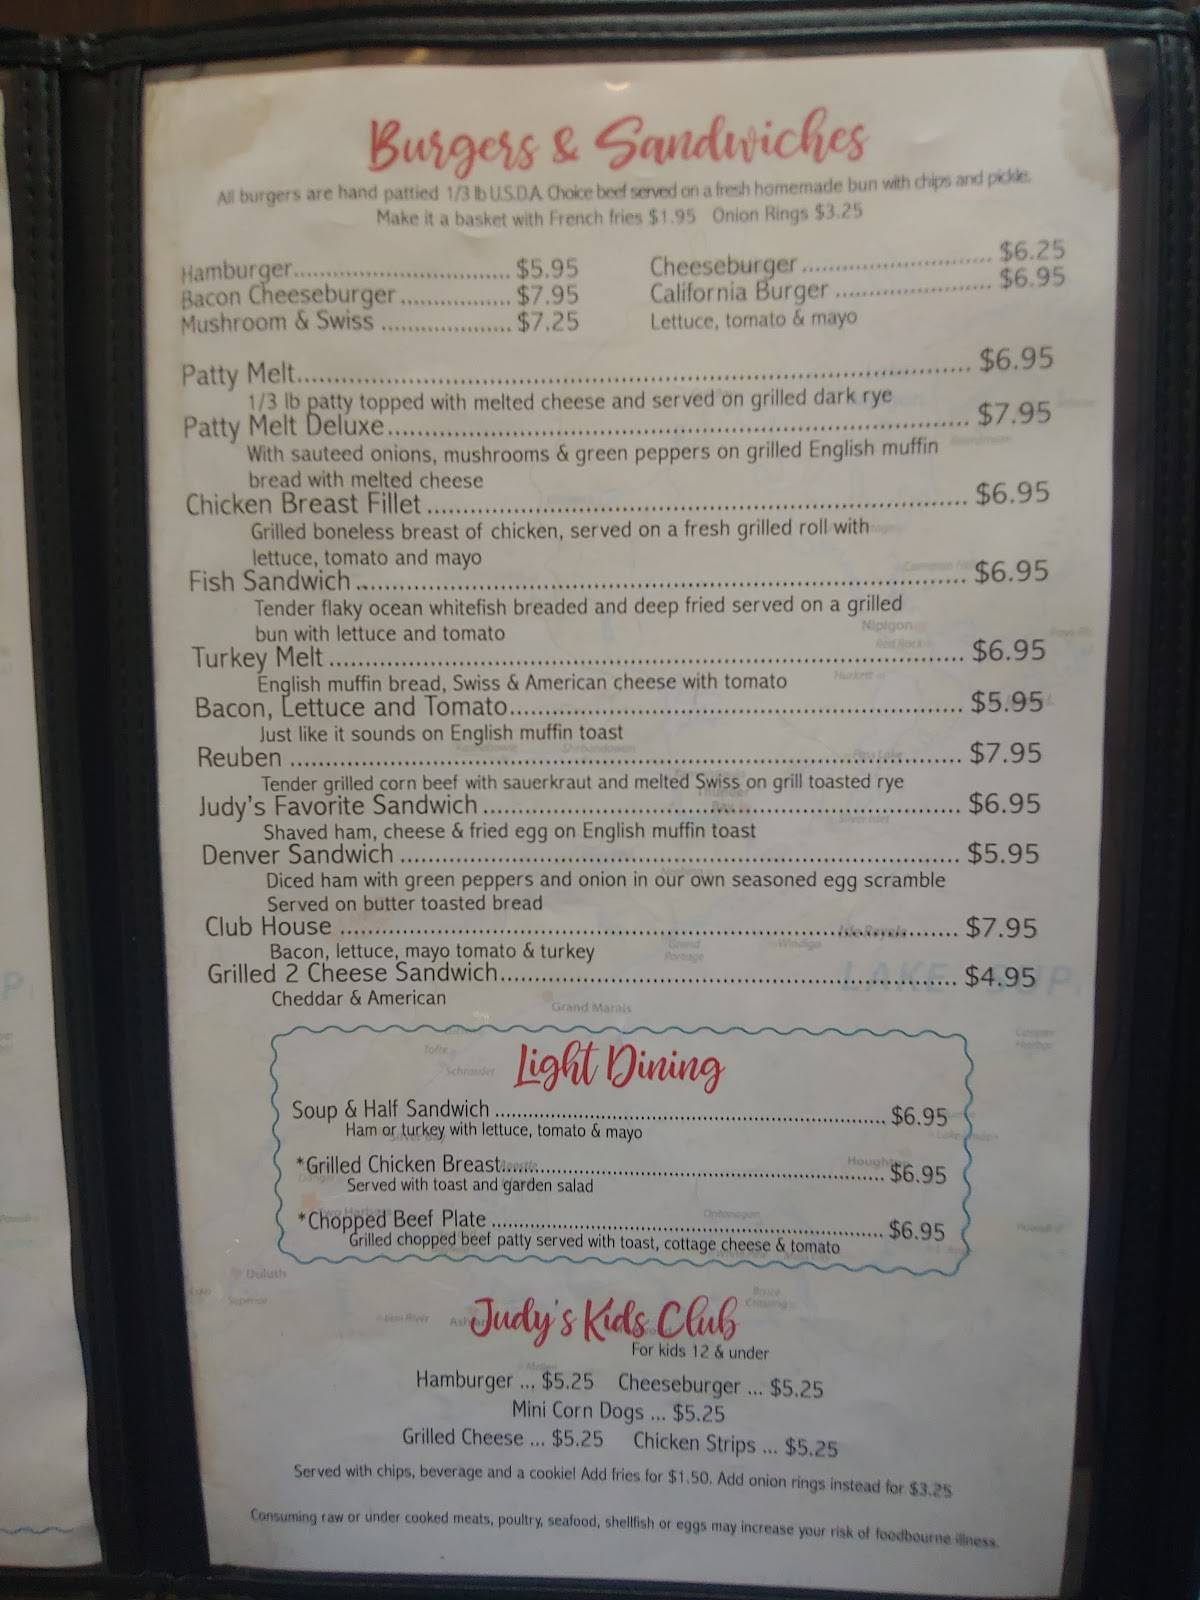 Burgers & Sandwiches
All burgers are hand pattied 1/3 lb U.S.D.A. Choice beef served on a fresh homemade bun with chips and pickle.
Make it a basket with French fries $1.95 Onion Rings $3.25
Hamburger.............................. $5.95
Bacon Cheeseburger................ $7.95
Mushroom & Swiss ................... $7.25
Cheeseburger ........................... $6.25
California Burger ...................... $6.95
Lettuce, tomato & mayo
Patty Melt.................................................................................. $6.95
1/3 lb patty topped with melted cheese and served on grilled dark rye
Patty Melt Deluxe...................................................................... $7.95
With sauteed onions, mushrooms & green peppers on grilled English muffin
bread with melted cheese
Chicken Breast Fillet ................................................................. $6.95
Grilled boneless breast of chicken, served on a fresh grilled roll with
lettuce, tomato and mayo
Fish Sandwich ........................................................................... $6.95
Tender flaky ocean whitefish breaded and deep fried served on a grilled
bun with lettuce and tomato
Turkey Melt ............................................................................... $6.95
English muffin bread, Swiss & American cheese with tomato
Bacon, Lettuce and Tomato........................................................ $5.95
Just like it sounds on English muffin toast
Reuben ..................................................................................... $7.95
Tender grilled corn beef with sauerkraut and melted Swiss on grill toasted rye
Judy's Favorite Sandwich ........................................................... $6.95
Shaved ham, cheese & fried egg on English muffin toast
Denver Sandwich ...................................................................... $5.95
Diced ham with green peppers and onion in our own seasoned egg scramble
Served on butter toasted bread
Club House ............................................................................... $7.95
Bacon, lettuce, mayo tomato & turkey
Grilled 2 Cheese Sandwich......................................................... $4.95
Cheddar & American
Light Dining
Soup & Half Sandwich ...................................................................... $6.95
Ham or turkey with lettuce, tomato & mayo
*Grilled Chicken Breast..................................................................... $6.95
Served with toast and garden salad
*Chopped Beef Plate ....................................................................... $6.95
Grilled chopped beef patty served with toast, cottage cheese & tomato
Judy's Kids Club
For kids 12 & under
Hamburger ... $5.25 Cheeseburger ... $5.25
Mini Corn Dogs ... $5.25
Grilled Cheese ... $5.25 Chicken Strips ... $5.25
Served with chips, beverage and a cookie! Add fries for $1.50. Add onion rings instead for $3.25
Consuming raw or under cooked meats, poultry, seafood, shellfish or eggs may increase your risk of foodbourne illness.
Nipigon
Red Rock
Hurkett
Silver Islet
Isle Royale
Grand
Portage
Windigo
LAKE SUP
Grand Marais
Copper
Harbor
Tofte
Schroeder
Houghton
Ontonagon
Duluth
Superior
Iron River
Bruce
Crossing